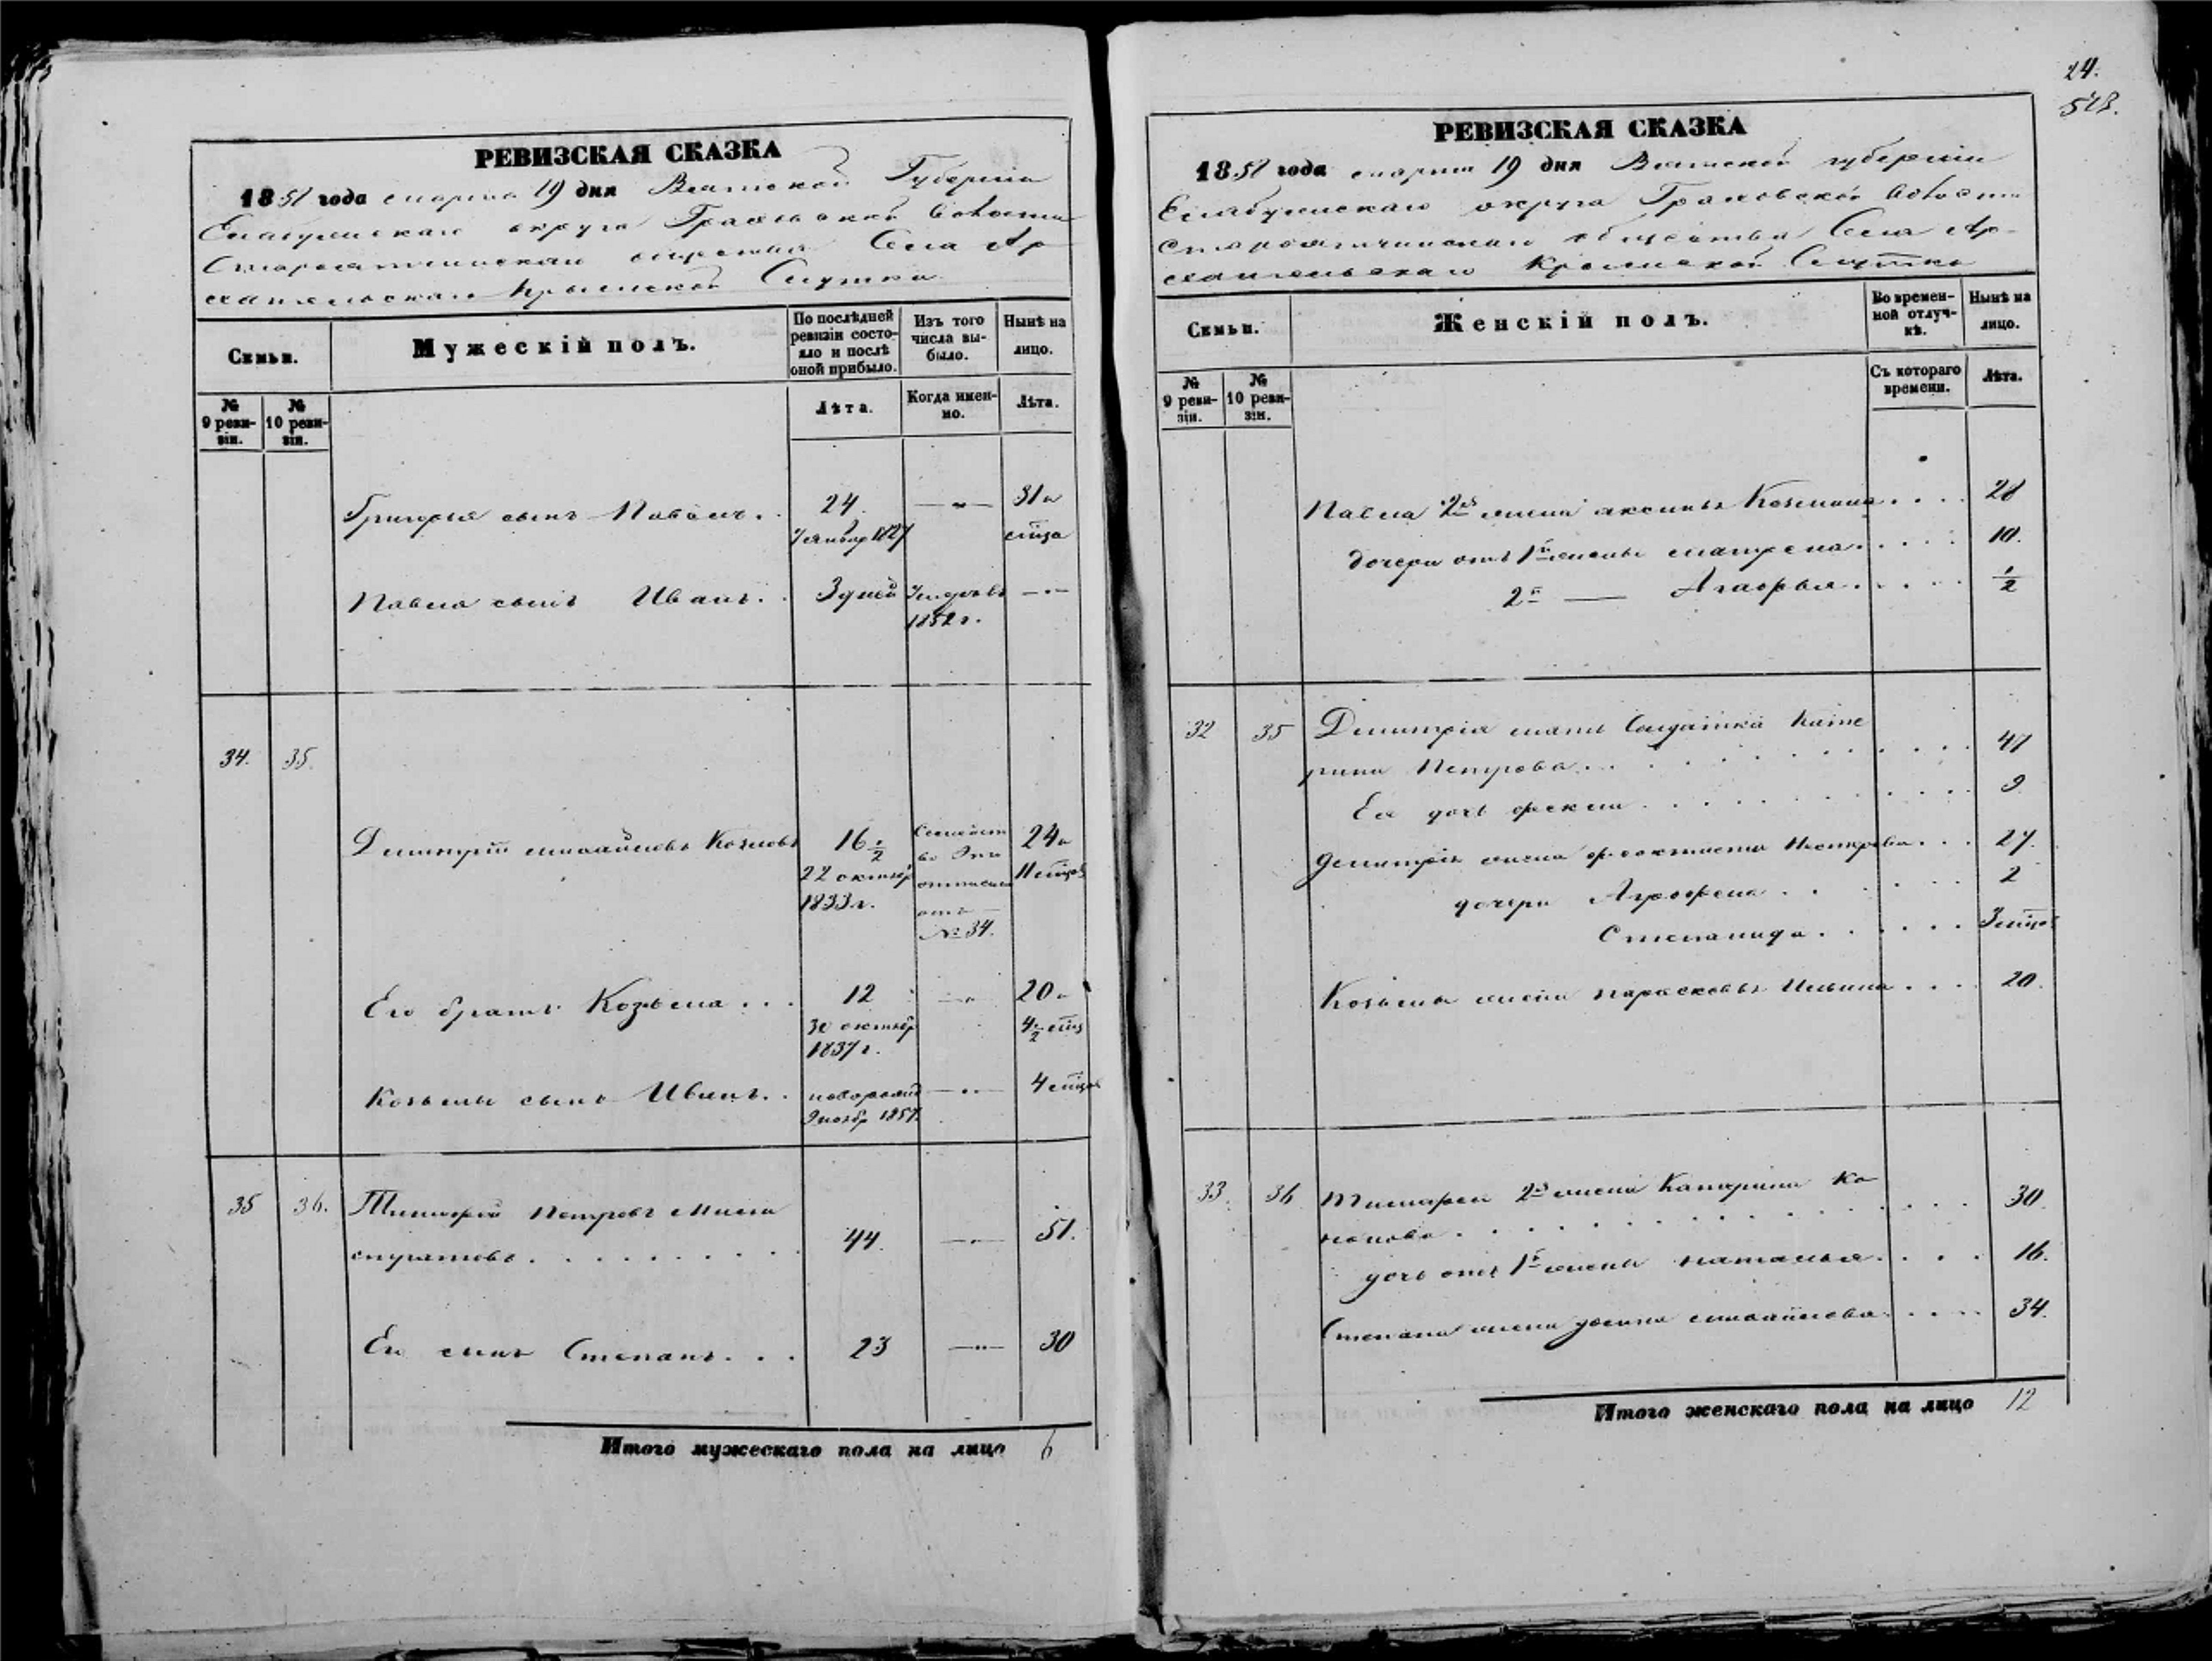 РЕВИЗСКАЯ СКАЗКА
1858 года марта 19 дня Вятской Губерніи
Елабужскаго округа Граховской Волости
общества Села Ар
хангельскаго Крымской Слудки
Семьи.
Мужескій полъ.
По послѣдней ревизіи состояло и послѣ оной прибыло.
Изъ того числа выбыло.
Нынѣ на лицо.
№ 9 ревизіи.
№ 10 ревизіи.
Лѣта.
Когда именно.
Лѣта.
Григорья сынъ Павелъ. 24. 31 и
7 января 1827
Павла сынъ Иванъ. 3 дней
1852 г.
34. 35.
Дмитрій Михайловъ Козловъ 16 1/2 Семейст 24 и
22 октяб во 11 мѣцов
1833 г. отъ
№ 34.
Его братъ Козьма... 12 20 и
30 октяб 4 1/2 мѣц
1837 г.
Козьмы сынъ Иванъ. новорожд 4 мѣцов
9 нояб 1857
35 36. Тимофей Петровъ 44. 51.
Его сынъ Степанъ... 23 30
Итого мужескаго пола на лицо 6
24.
РЕВИЗСКАЯ СКАЗКА
1858 года марта 19 дня Вятской губерніи
Елабужскаго округа Граховской Волости
общества Села Ар-
хангельскаго Крымской Слудки
Семьи.
Женскій полъ.
Во временной отлучкѣ.
Нынѣ на лицо.
№ 9 ревизіи.
№ 10 ревизіи.
Съ котораго времени.
Лѣта.
Павла 2я жена Аксинья Козмина.... 28
дочери отъ 1й жены Матрена.... 10.
2й — Агафья.... 1/2
32 35 Дмитрія мать Солдатка Кате
рина Петрова... 47
Ея дочь Фекла... 9
Дмитрія жена Феоктиста Нестерова... 27.
дочери Агрофена... 2
Степанида... 3 мѣцов
Козьмы жена Парасковья Ильина.... 20.
33. 36 Тимофея 2я жена Катерина Ко
нонова... 30.
дочь отъ 1й жены Наталья.... 16.
Степана жена Михайлова.... 34.
Итого женскаго пола на лицо 12